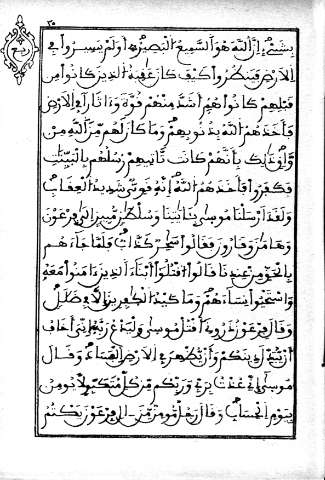 ٣٥
ربع
بشيء إن الله هو السميع البصير أولم يسيروا في
الارض فينظروا كيف كان عاقبة الذين كانوا من
قبلهم كانوا هم أشد منهم قوة وءاثارا في الارض
فأخذهم الله بذنوبهم وما كان لهم من الله من
واق ذلك بأنهم كانت تأتيهم رسلهم بالبينت
فكفروا فأخذهم الله إنه قوي شديد العقاب
ولقد أرسلنا موسى بئايتنا وسلطن مبين إلى فرعون
وهامن وقارون فقالوا سحر كذاب فلما جاءهم
بالحق من عندنا قالوا اقتلوا أبناء الذين ءامنوا معه
واستحيوا نساءهم وما كيد الكفرين إلا في ضلل
وقال فرعون ذروني أقتل موسى وليدع ربه إني أخاف
أن يبدل دينكم وأن يظهر في الارض الفساد وقال
موسى إني عذت بربي وربكم من كل متكبر لا يومن
بيوم الحساب وقال رجل مومن من ءال فرعون يكتم